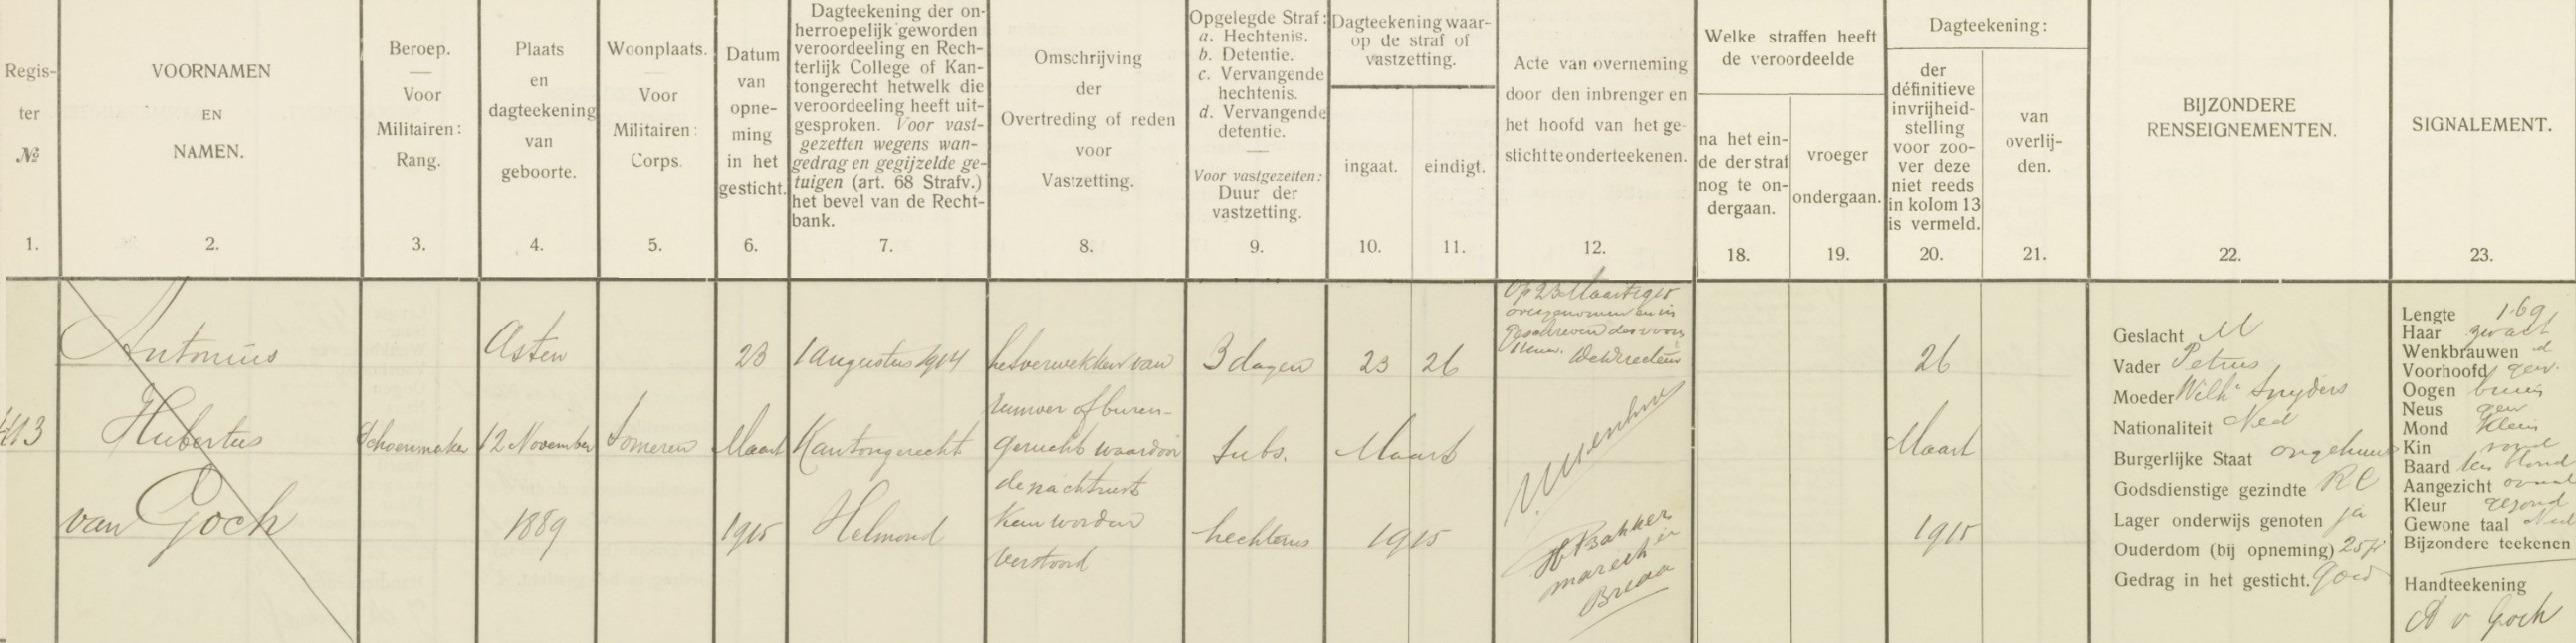 Regis-
ter
№
1.
VOORNAMEN
EN
NAMEN.
2.
Beroep.
—
Voor
Militairen:
Rang.
3.
Plaats
en
dagteekening
van
geboorte.
4.
Woonplaats.
—
Voor
Militairen:
Corps.
5.
Datum
van
opne-
ming
in het
gesticht.
6.
Dagteekening der on-
herroepelijk geworden
veroordeeling en Rech-
terlijk College of Kan-
tongerecht hetwelk die
veroordeeling heeft uit-
gesproken. Voor vast-
gezetten wegens wan-
gedrag en gegijzelde ge-
tuigen (art. 68 Strafv.)
het bevel van de Recht-
bank.
7.
Omschrijving
der
Overtreding of reden
voor
Vastzetting.
8.
Opgelegde Straf:
a. Hechtenis.
b. Detentie.
c. Vervangende
hechtenis.
d. Vervangende
detentie.
—
Voor vastgezetten:
Duur der
vastzetting.
9.
Dagteekening waar-
op de straf of
vastzetting.
ingaat.
10.
eindigt.
11.
Acte van overneming
door den inbrenger en
het hoofd van het ge-
sticht te onderteekenen.
12.
Welke straffen heeft
de veroordeelde
na het ein-
de der straf
nog te on-
dergaan.
18.
vroeger
ondergaan.
19.
Dagteekening:
der
définitieve
invrijheid-
stelling
voor zoo-
ver deze
niet reeds
in kolom 13
is vermeld.
20.
van
overlij-
den.
21.
BIJZONDERE
RENSEIGNEMENTEN.
22.
SIGNALEMENT.
23.
413
Antonius
Hubertus
van Goch
Schoenmaker
Asten
12 November
1889
Someren
23
Maart
1915
1 Augustus 1914
Kantongerecht
Helmond
het verwekken van
rumoer of buren-
gerucht waardoor
de nachtrust
kan worden
verstoord
3 dagen
subs.
hechtenis
23 26
Maart
1915
Op 23 Maart 1915
overgenomen en in
geschreven de voorn
De Directeur
H Bakker
marech
Breda
26
Maart
1915
Geslacht M
Vader Petrus
Moeder Wilh Snyders
Nationaliteit Ned
Burgerlijke Staat ongehuwd
Godsdienstige gezindte RC
Lager onderwijs genoten ja
Ouderdom (bij opneming) 25 jr
Gedrag in het gesticht. Goed
Lengte 1.69
Haar zwart
Wenkbrauwen id
Voorhoofd gew.
Oogen bruin
Neus gew
Mond klein
Kin rond
Baard blond
Aangezicht ovaal
Kleur gezond
Gewone taal Ned
Bijzondere teekenen
Handteekening
A v Goch